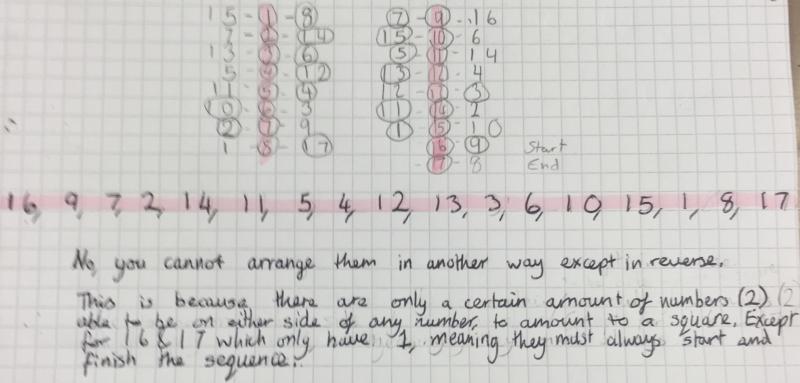 15-1-8
7-2-14
13-3-6
5-4-12
11-5-4
10-6-3
2-7-9
1-8-17
7-9-16
15-10-6
5-11-14
13-12-4
12-13-3
11-14-2
1-15-10
16-9 Start
-17-8 End
16, 9, 7, 2, 14, 11, 5, 4, 12, 13, 3, 6, 10, 15, 1, 8, 17
No, you cannot arrange them in another way except in reverse.
This is because there are only a certain amount of numbers (2) (2
able to be on either side of any number, to amount to a square. Except
for 16 & 17 which only have 1, meaning they must always start and
finish the sequence.